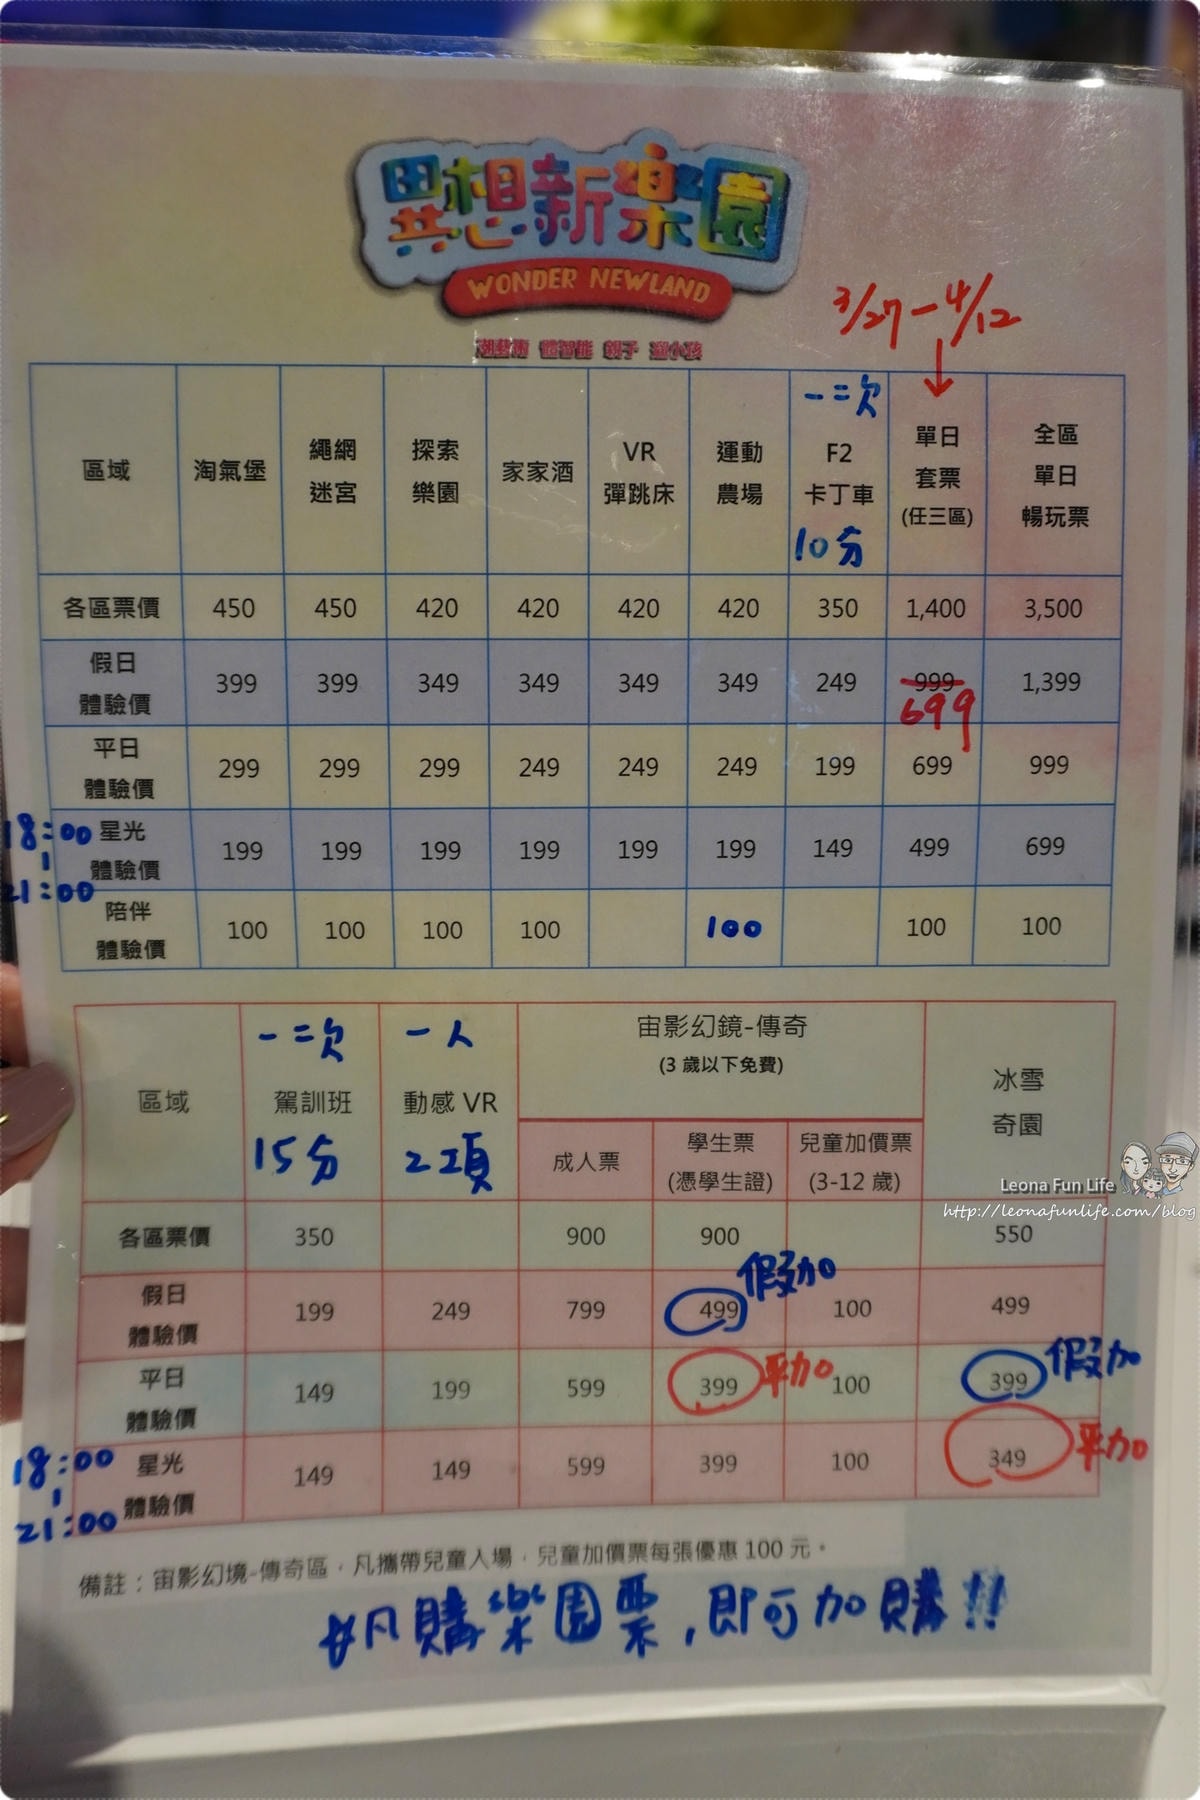 異想新樂園
WONDER NEWLAND
潮藝術 體智能 親子 遛小孩
3/27-4/12
區域 淘氣堡 繩網迷宮 探索樂園 家家酒 VR彈跳床 運動農場 一=次 F2卡丁車 10分 單日套票(任三區) 全區單日暢玩票
各區票價 450 450 420 420 420 420 350 1,400 3,500
假日體驗價 399 399 349 349 349 349 249 999 699 1,399
平日體驗價 299 299 299 249 249 249 199 699 999
18:00-21:00 星光體驗價 199 199 199 199 199 199 149 499 699
陪伴體驗價 100 100 100 100 100 100 100
區域 一=次 駕訓班 15分 一人 動感 VR 2項 宙影幻鏡-傳奇 (3 歲以下免費) 冰雪奇園
成人票 學生票(憑學生證) 兒童加價票(3-12 歲)
Leona Fun Life
http://leonafunlife.com/blog
各區票價 350 900 900 550
假日體驗價 199 249 799 499 假加 100 499
平日體驗價 149 199 599 399 平加 100 399 假加
18:00-21:00 星光體驗價 149 149 599 399 100 349 平加
備註：宙影幻境-傳奇區，凡攜帶兒童入場，兒童加價票每張優惠 100 元。
#凡購樂園票，即可加購!!